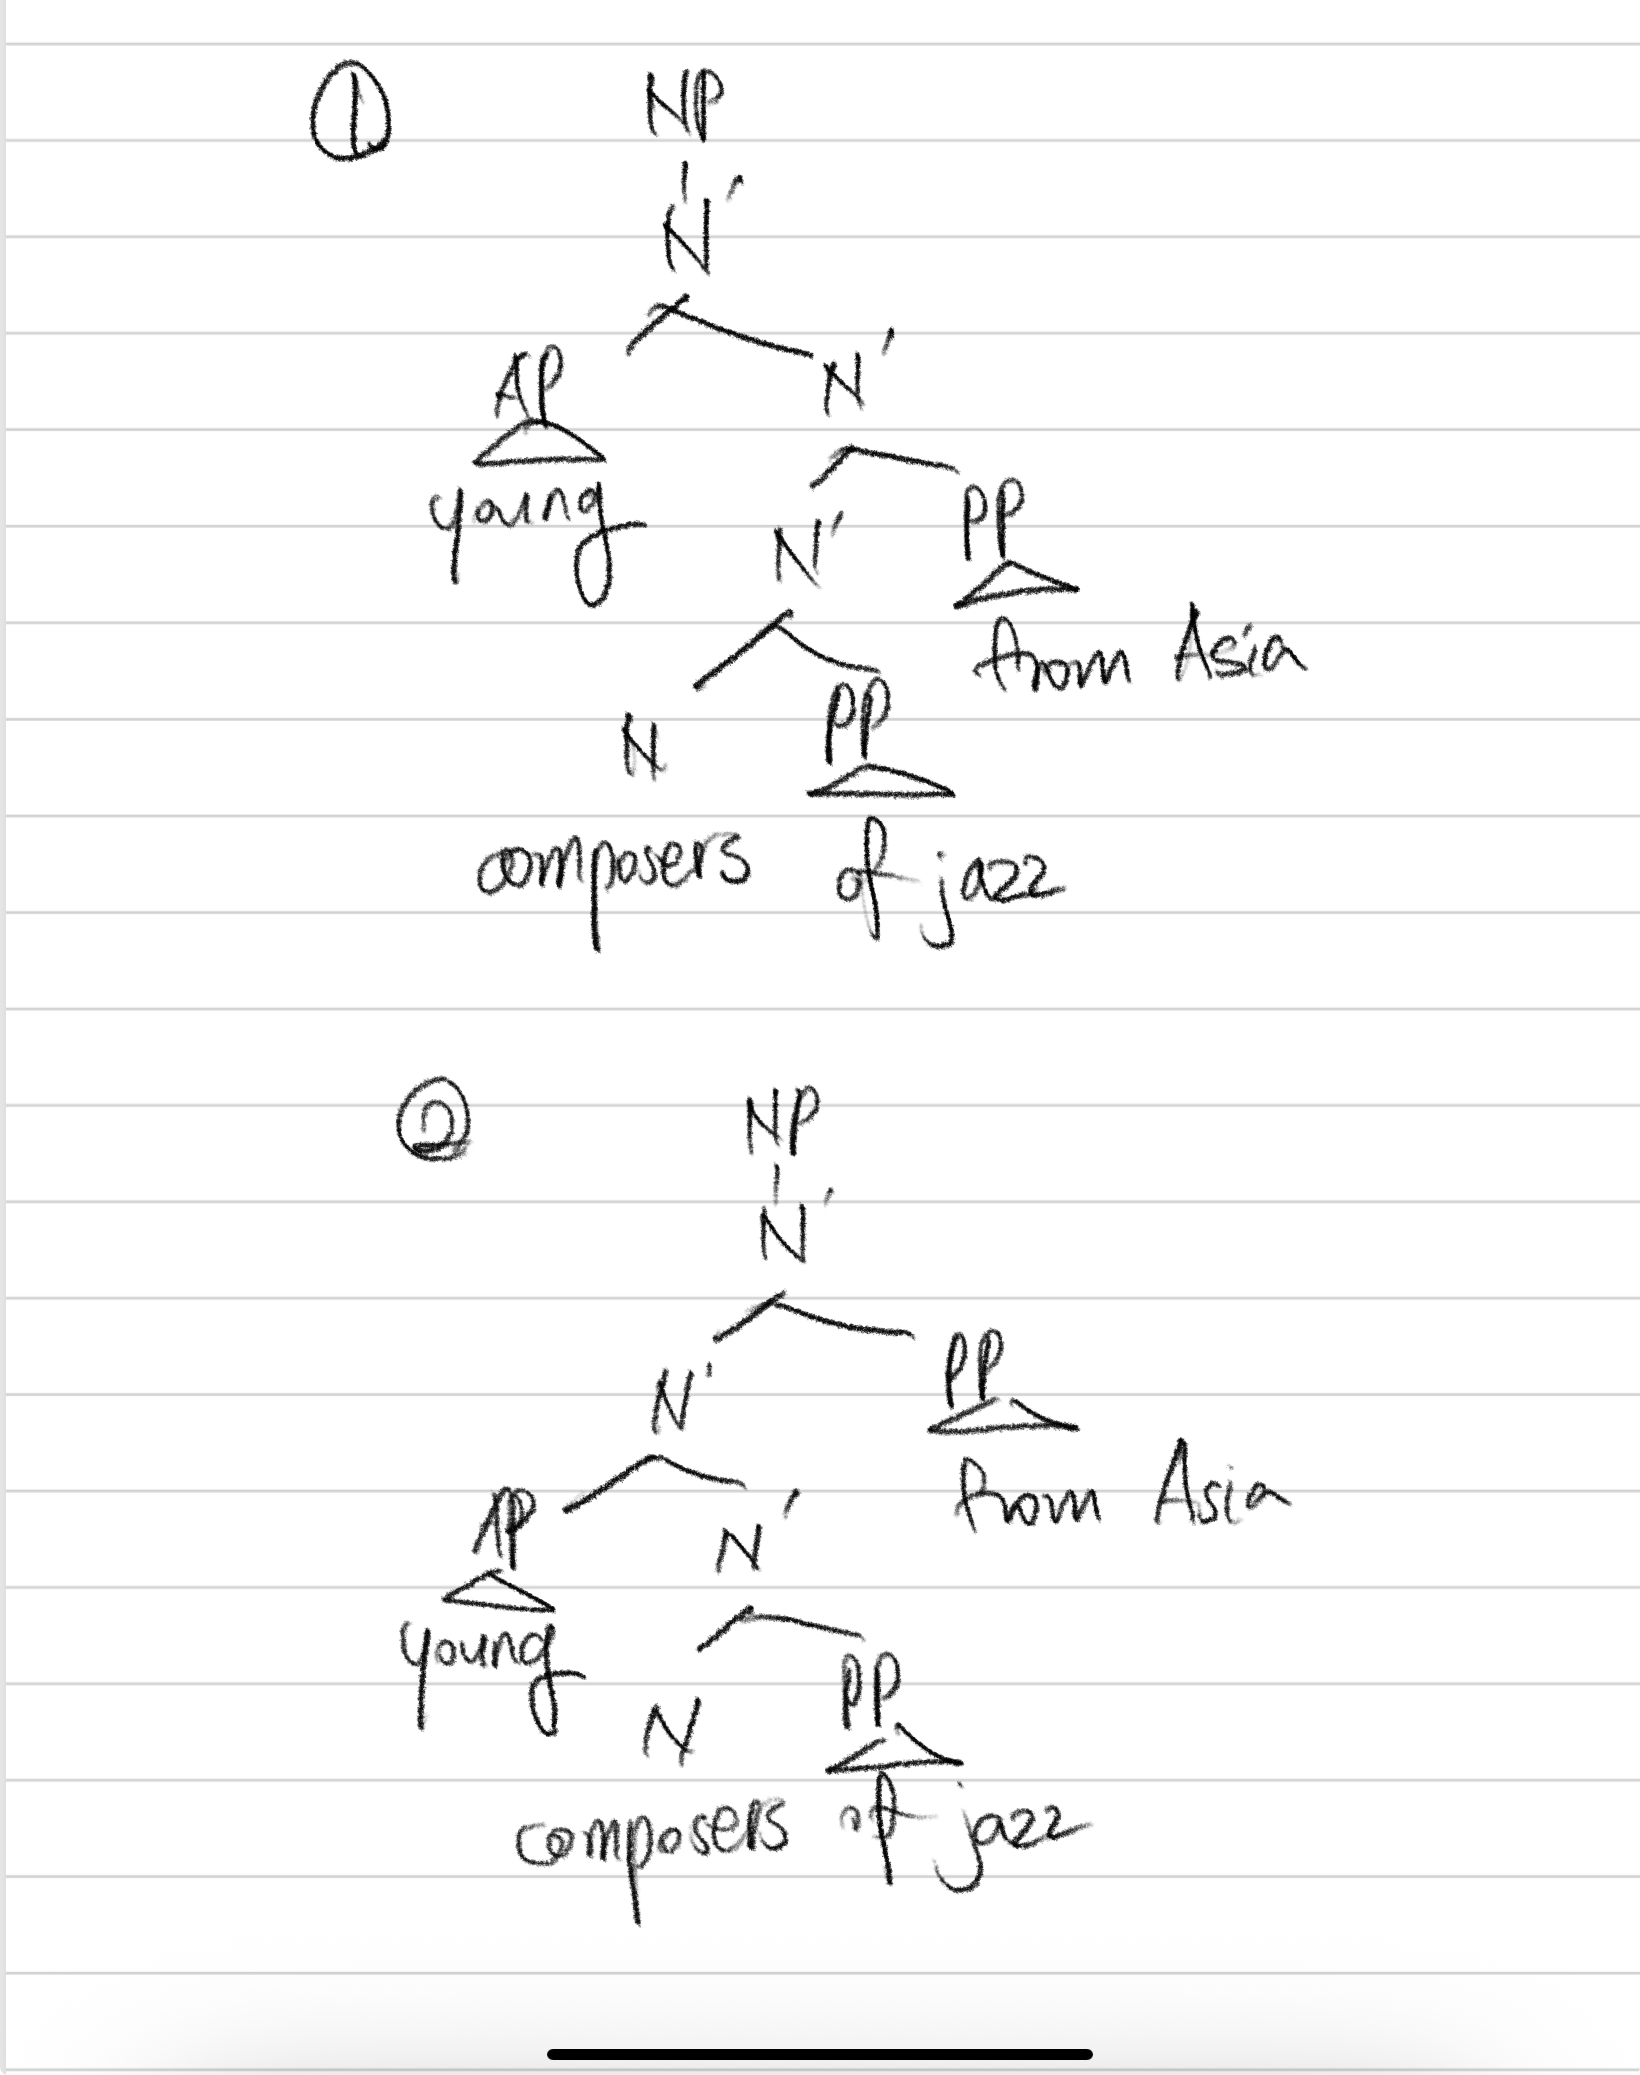 ① NP
N′
AP N′
young N′ PP
from Asia
N PP
composers of jazz
② NP
N′
N′ PP
AP N′ from Asia
young
N PP
composers of jazz